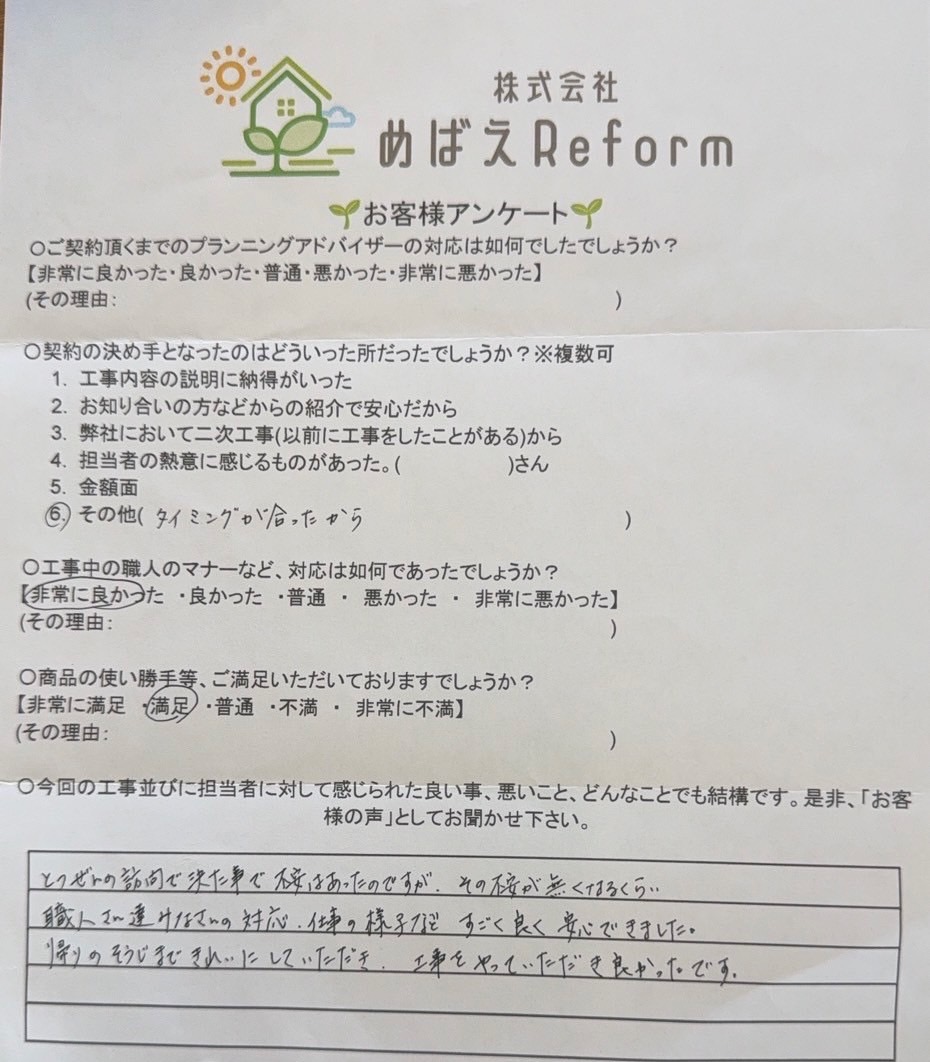 株式会社
めばえReform
お客様アンケート
○ご契約頂くまでのプランニングアドバイザーの対応は如何でしたでしょうか？
【非常に良かった・良かった・普通・悪かった・非常に悪かった】
(その理由: )
○契約の決め手となったのはどういった所だったでしょうか？※複数可
1. 工事内容の説明に納得がいった
2. お知り合いの方などからの紹介で安心だから
3. 弊社において二次工事(以前に工事をしたことがある)から
4. 担当者の熱意に感じるものがあった。( )さん
5. 金額面
6. その他( タイミングが合ったから )
○工事中の職人のマナーなど、対応は如何であったでしょうか？
【非常に良かった ・良かった ・普通 ・ 悪かった ・ 非常に悪かった】
(その理由: )
○商品の使い勝手等、ご満足いただいておりますでしょうか？
【非常に満足 ・満足 ・普通 ・不満 ・ 非常に不満】
(その理由: )
○今回の工事並びに担当者に対して感じられた良い事、悪いこと、どんなことでも結構です。是非、「お客
様の声」としてお聞かせ下さい。
とつぜんの訪問で来た事で不安はあったのですが、その不安が無くなるくらい
職人さん達みなさんの対応、仕事の様子など すごく良く安心できました。
帰りのそうじまできれいにしていただき、工事をやっていただき良かったです。